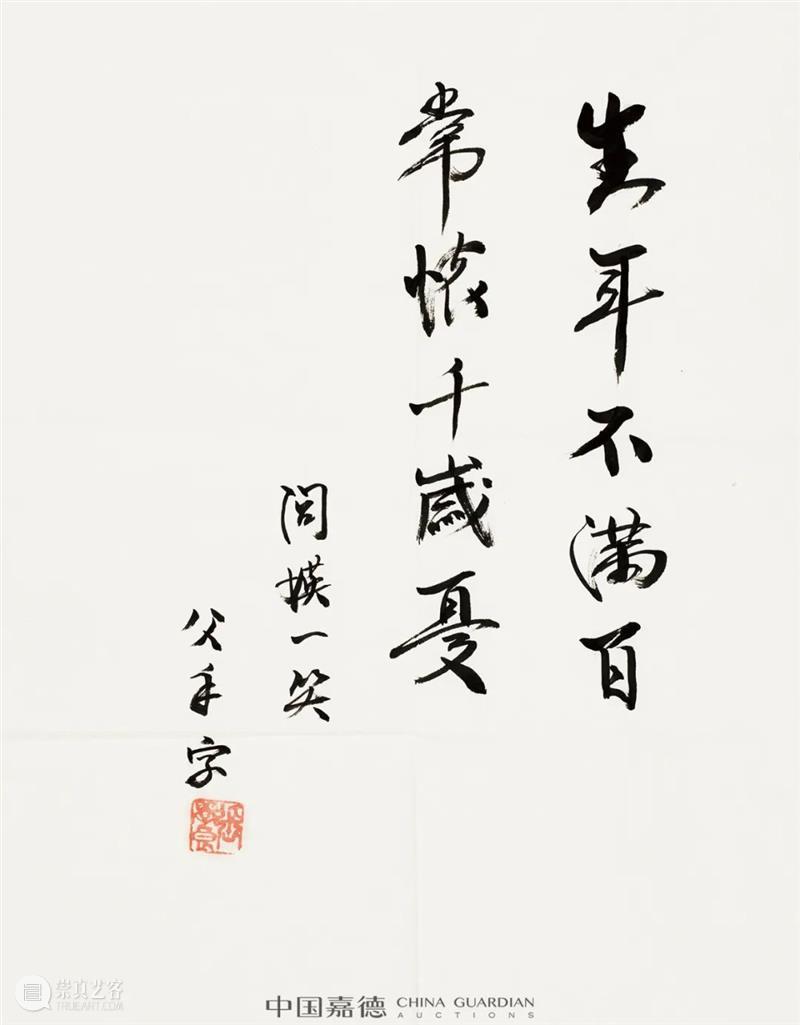 生年不滿百
常懷千歲憂
閭媖一笑
父手字
崇真艺客
WWW.TRUEART.COM
中国嘉德 CHINA GUARDIAN
AUCTIONS